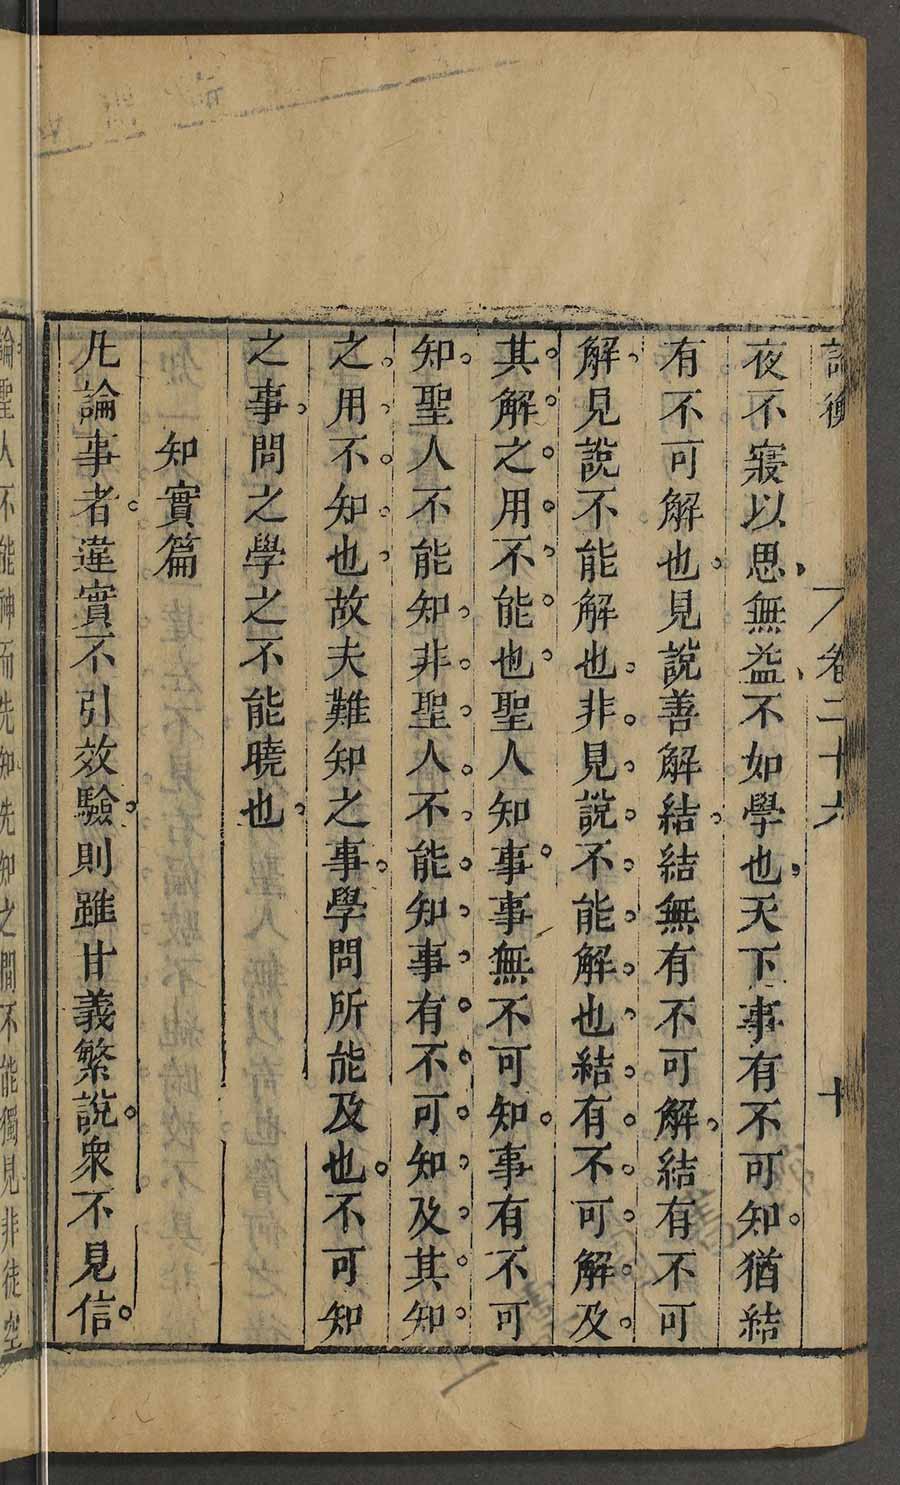 論衡 卷二十六 十
夜不寢以思無益不如學也天下事有不可知猶結
有不可解也見說善解結結無有不可解結有不可
解見說不能解也非見說不能解也結有不可解及
其解之用不能也聖人知事事無不可知事有不可
知聖人不能知非聖人不能知事有不可知及其知
之用不知也故夫難知之事學問所能及也不可知
之事問之學之不能曉也
知實篇
凡論事者違實不引效驗則雖甘義繁說衆不見信
論聖人不能神而先知先知之間不能獨見非徒空